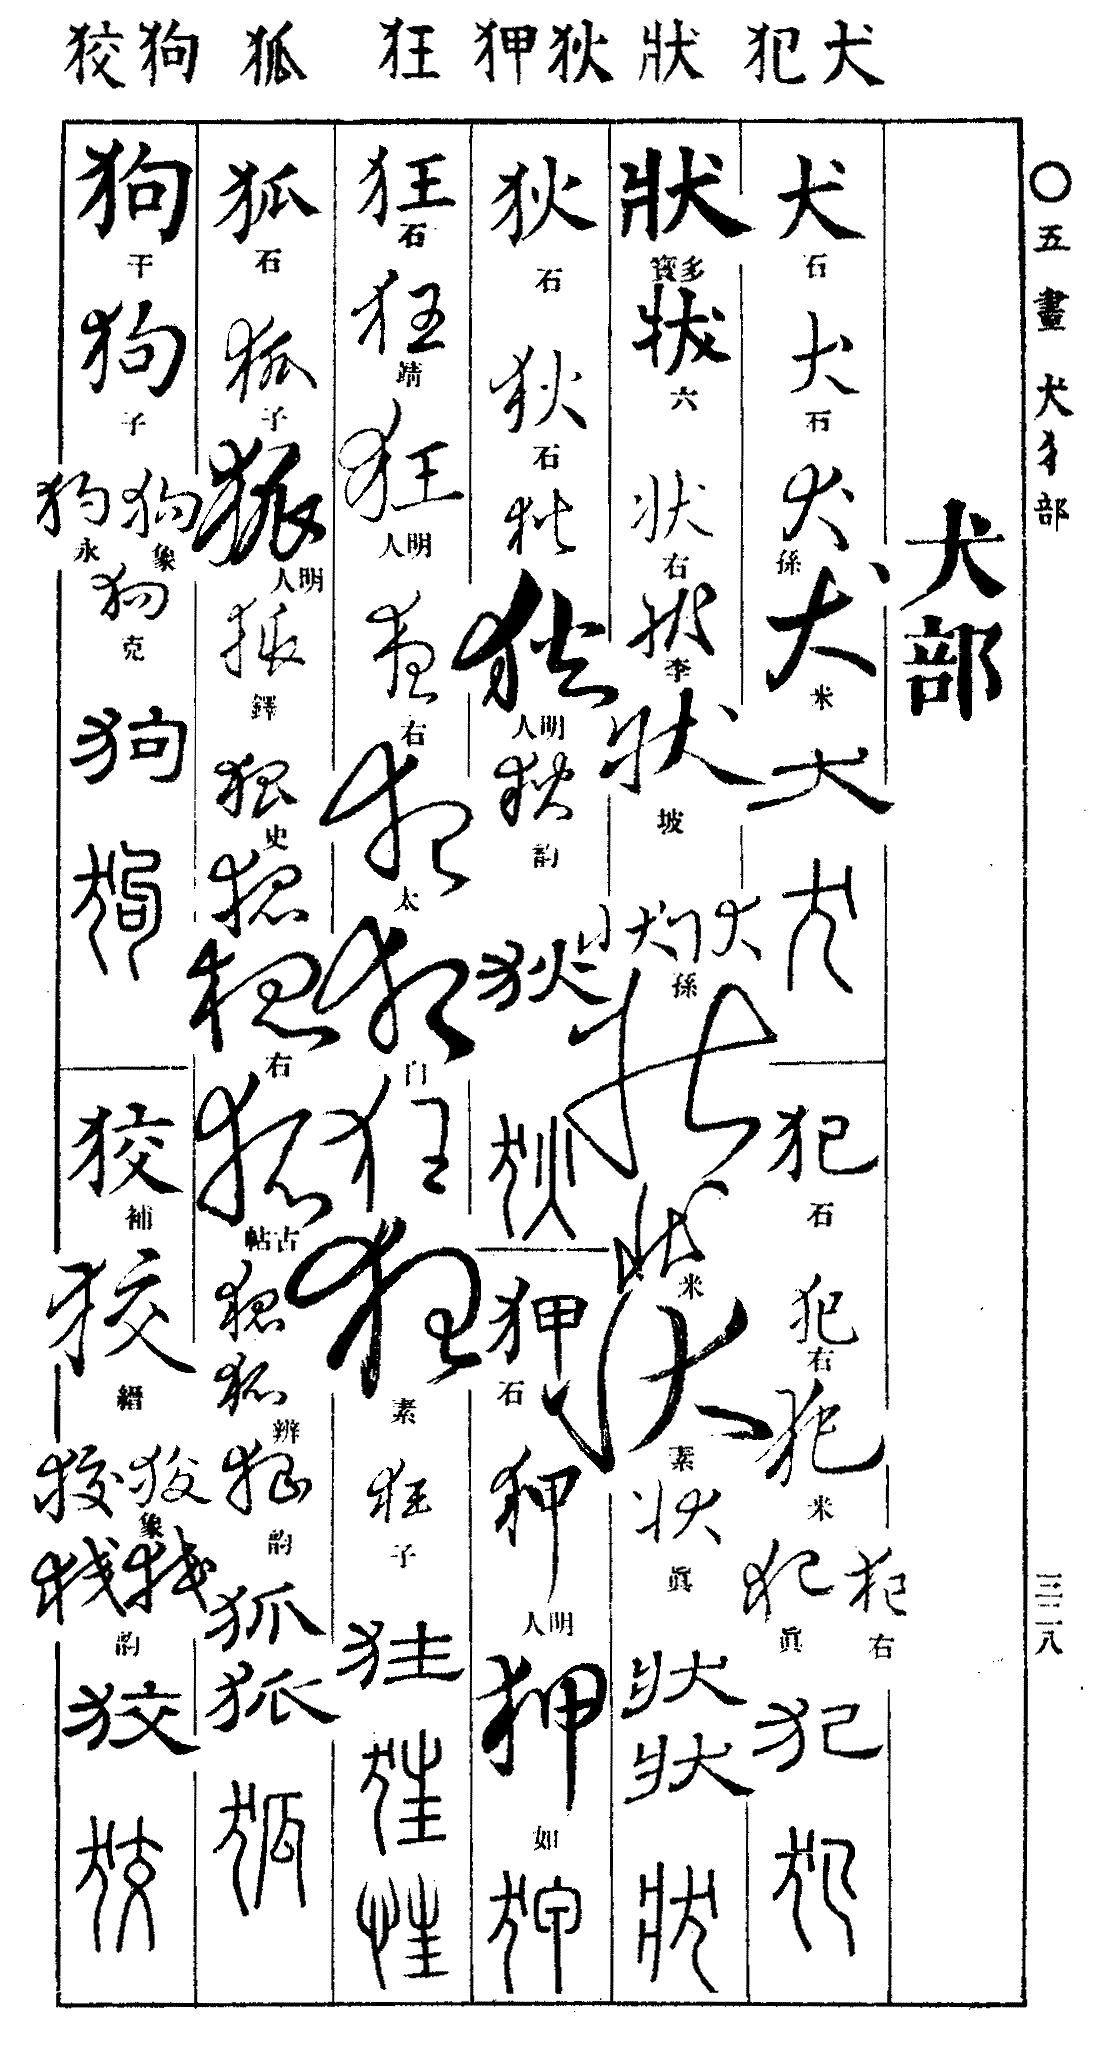 犬 犯 狀 狄 狎 狂 狐 狗 狡
〇五畫 犬犭部
三二八
犬部
犬 石 犬 石 犬 孫 犬 米 犬 犬
犯 石 犯 右 犯 米 犯 右 犯 眞 犯 犯
狀 多寶 狀 六 狀 右 狀 李 狀 坡 狀 狀 孫 狀 狀 米 狀 素 狀 眞 狀 狀 狀
狄 石 狄 石 狄 狄 明人 狄 韵 狄 狄
狎 石 狎 明人 狎 如 狎
狂 石 狂 靖 狂 明人 狂 右 狂 太 狂 白 狂 狂 素 狂 子 狂 狂 狂
狐 石 狐 子 狐 明人 狐 鐸 狐 史 狐 狐 右 狐 古帖 狐 狐 辨 狐 韵 狐 狐 狐
狗 干 狗 子 狗 象 狗 永 狗 克 狗 狗
狡 補 狡 縉 狡 象 狡 狡 狡 韵 狡 狡